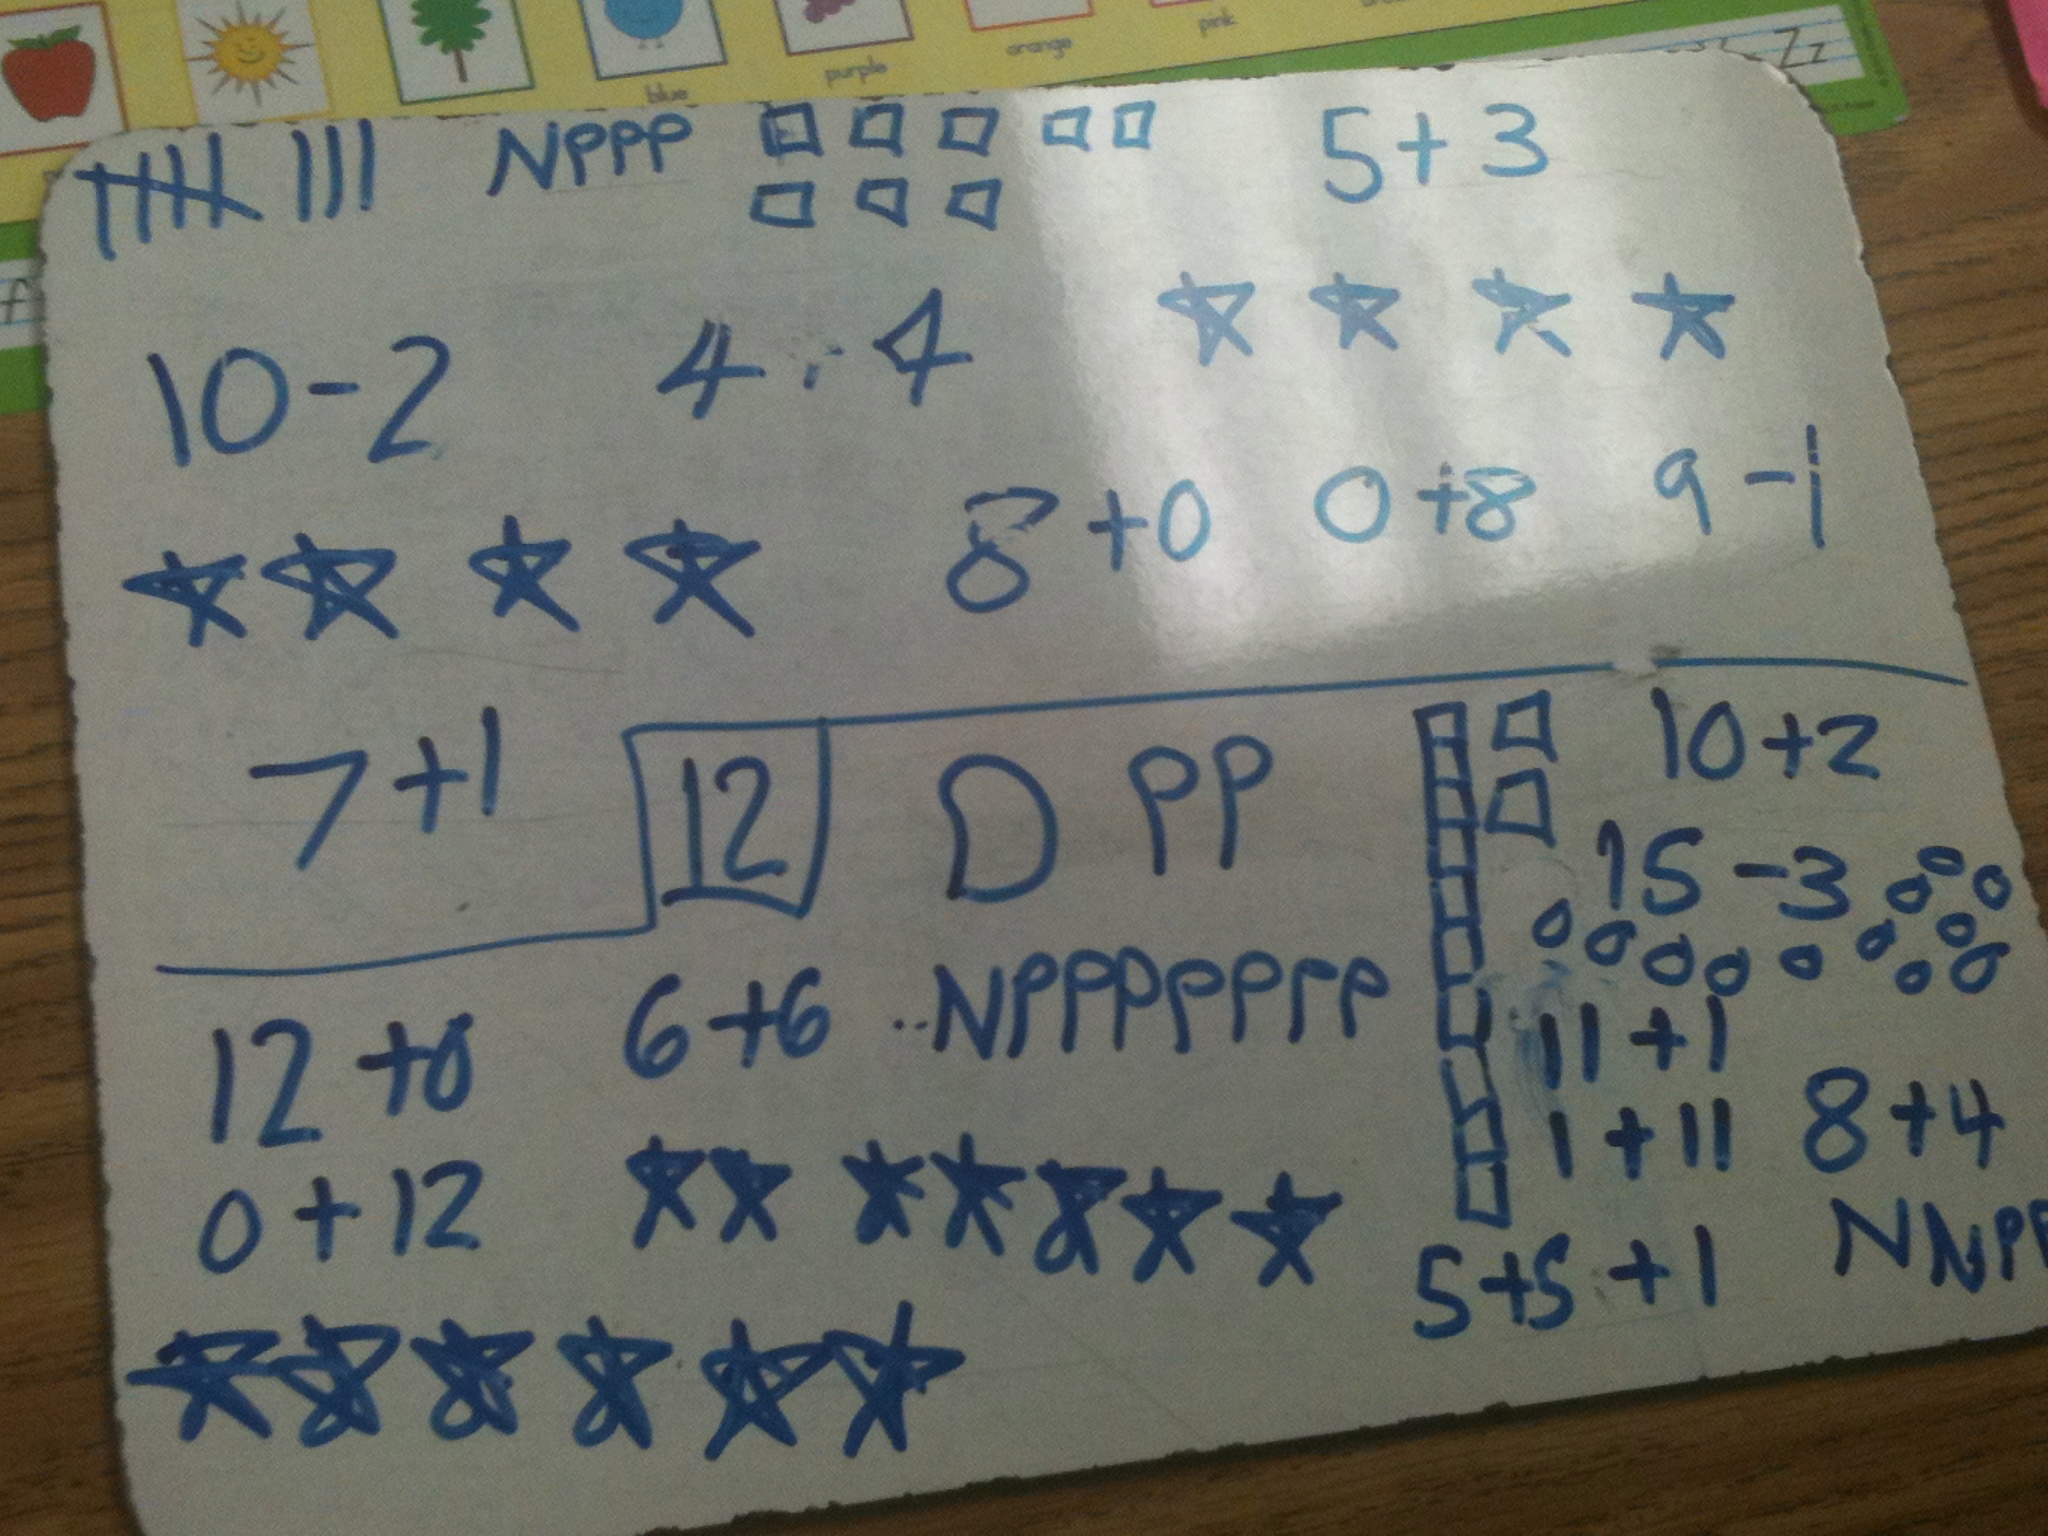 blue purple orange pink
Zz
NPPP 5+3
10-2 4 4
8+0 0+8 9-1
7+1 12 D PP 10+2
15-3
12+0 6+6 NPPPPPPPP 11+1
0+12 1+11 8+4
5+5+1 NNPP